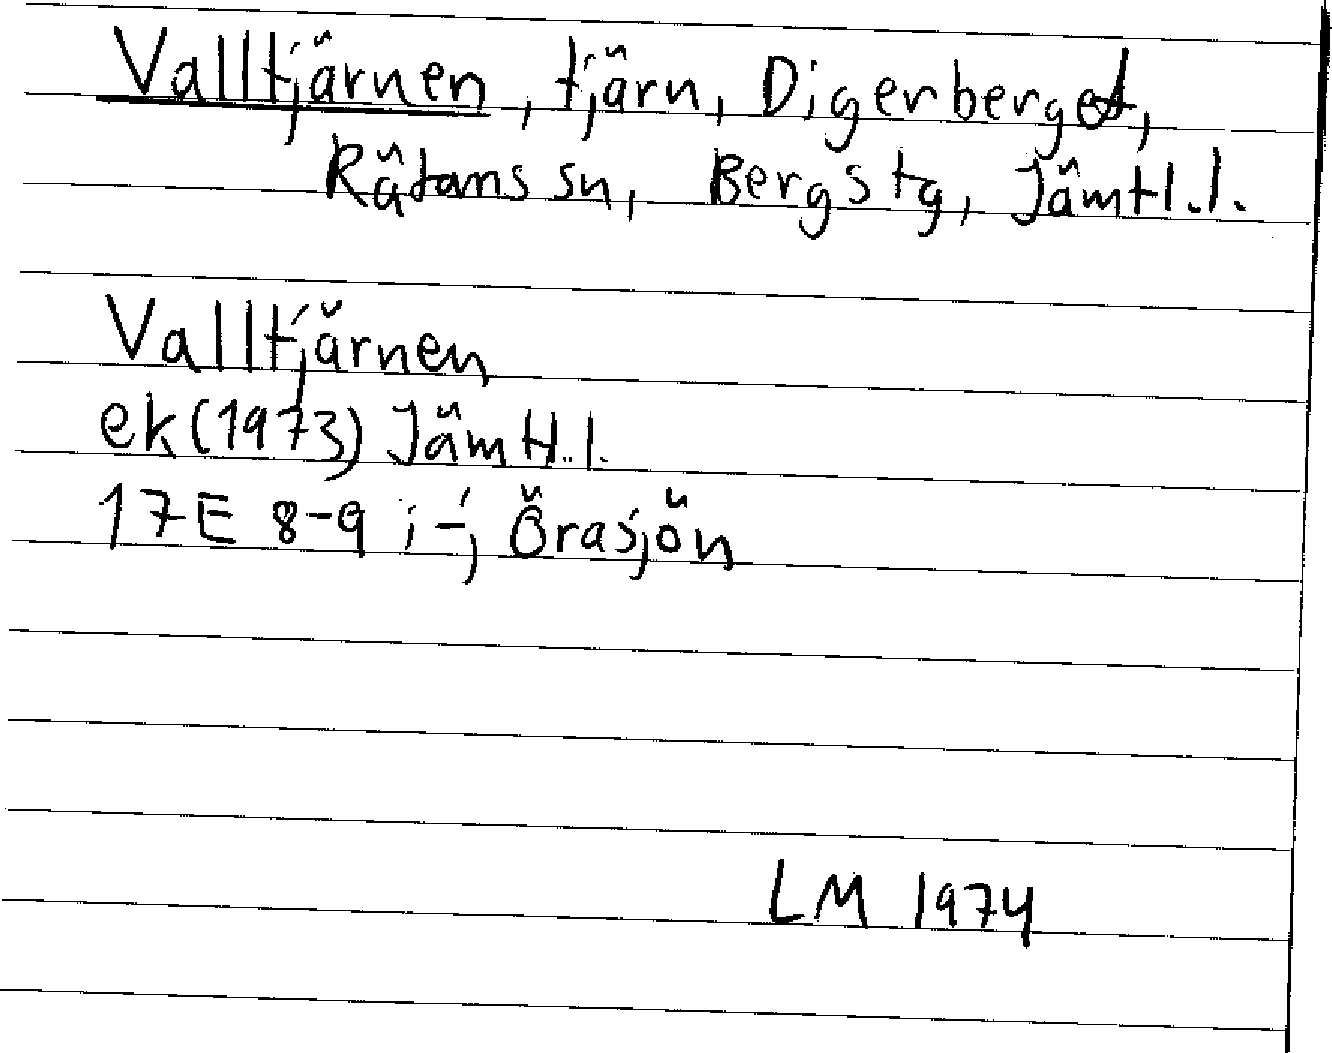 Valltjärnen, tjärn, Digerberget,
Rätans sn, Bergs tg, Jämtl.l.
Valltjärnen
ek(1973) Jämtl.l.
17E 8-9 i-j Örasjön
LM 1974